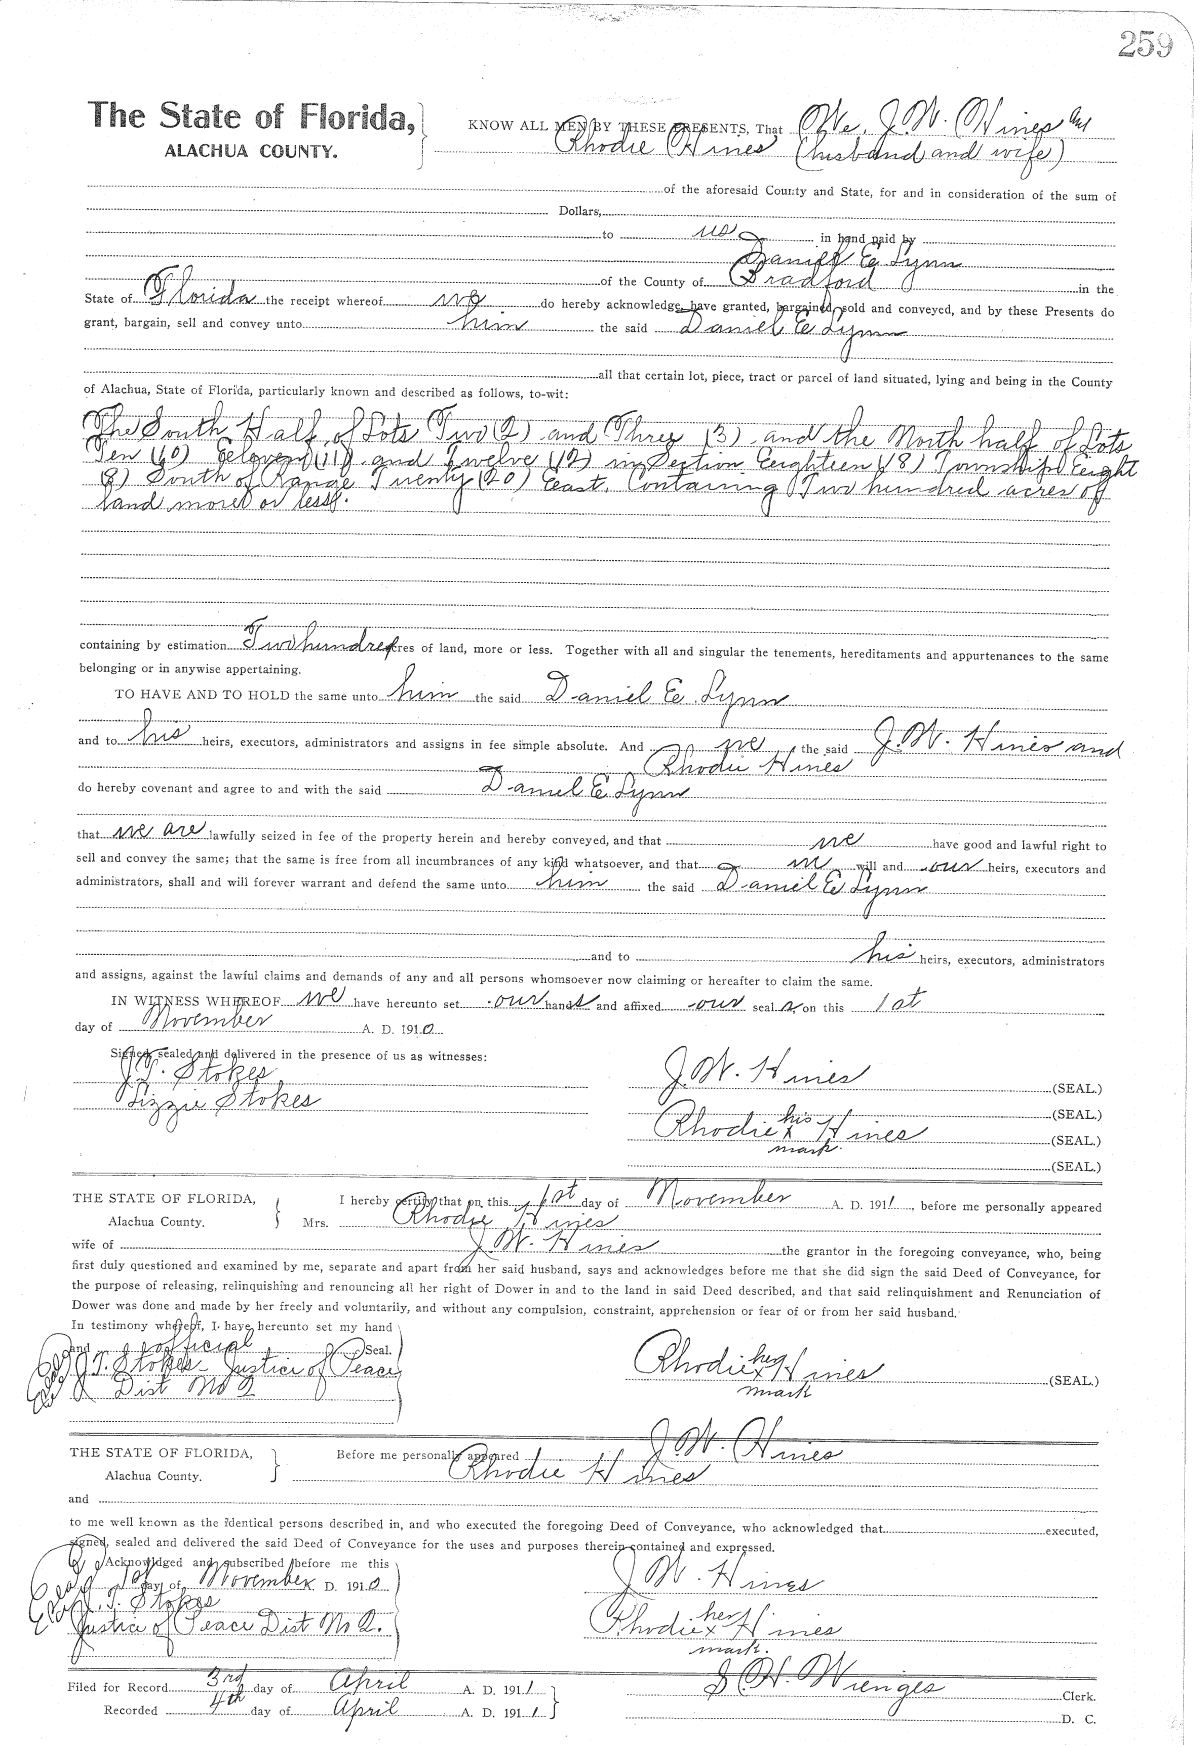 259
The State of Florida,
ALACHUA COUNTY.
KNOW ALL MEN BY THESE PRESENTS, That We, J. W. Hines and
Rhodie Hines (husband and wife)
of the aforesaid County and State, for and in consideration of the sum of
Dollars,
to us in hand paid by
Daniel E Lynn
of the County of Bradford in the
State of Florida the receipt whereof we do hereby acknowledge, have granted, bargained, sold and conveyed, and by these Presents do
grant, bargain, sell and convey unto him the said Daniel E Lynn
all that certain lot, piece, tract or parcel of land situated, lying and being in the County
of Alachua, State of Florida, particularly known and described as follows, to-wit:
The South Half of Lots Two (2) and Three (3) and the North half of Lots
Ten (10) Eleven (11) and Twelve (12) in Section Eighteen (18) Township Eight
(8) South of Range Twenty (20) East. Containing Two hundred acres of
land more or less.
containing by estimation Two hundred acres of land, more or less. Together with all and singular the tenements, hereditaments and appurtenances to the same
belonging or in anywise appertaining.
TO HAVE AND TO HOLD the same unto him the said Daniel E Lynn
and to his heirs, executors, administrators and assigns in fee simple absolute. And we the said J. W. Hines and
Rhodie Hines
do hereby covenant and agree to and with the said Daniel E Lynn
that we are lawfully seized in fee of the property herein and hereby conveyed, and that we have good and lawful right to
sell and convey the same; that the same is free from all incumbrances of any kind whatsoever, and that will and our heirs, executors and
administrators, shall and will forever warrant and defend the same unto him the said Daniel E Lynn
and to his heirs, executors, administrators
and assigns, against the lawful claims and demands of any and all persons whomsoever now claiming or hereafter to claim the same.
IN WITNESS WHEREOF we have hereunto set our hands and affixed our seals on this 1st
day of November A. D. 1910
Signed, sealed and delivered in the presence of us as witnesses:
J. T. Stokes
Lizzie Stokes
J. W. Hines (SEAL.)
(SEAL.)
his
Rhodie x Hines (SEAL.)
mark.
(SEAL.)
THE STATE OF FLORIDA,
Alachua County.
I hereby certify that on this 1st day of November A. D. 1911, before me personally appeared
Mrs. Rhodie Hines
wife of J. W. Hines the grantor in the foregoing conveyance, who, being
first duly questioned and examined by me, separate and apart from her said husband, says and acknowledges before me that she did sign the said Deed of Conveyance, for
the purpose of releasing, relinquishing and renouncing all her right of Dower in and to the land in said Deed described, and that said relinquishment and Renunciation of
Dower was done and made by her freely and voluntarily, and without any compulsion, constraint, apprehension or fear of or from her said husband.
In testimony whereof, I have hereunto set my hand
and official Seal.
J. T. Stokes Justice of Peace
Dist No 2
her
Rhodie x Hines (SEAL.)
mark
THE STATE OF FLORIDA,
Alachua County.
Before me personally appeared J. W. Hines
Rhodie Hines
and
to me well known as the identical persons described in, and who executed the foregoing Deed of Conveyance, who acknowledged that executed,
signed, sealed and delivered the said Deed of Conveyance for the uses and purposes therein contained and expressed.
Acknowledged and subscribed before me this
1st day of November A. D. 1910
J. T. Stokes
Justice of Peace Dist No 2.
J. W. Hines
her
Rhodie x Hines
mark.
Filed for Record 3rd day of April A. D. 1911
Recorded 4th day of April A. D. 1911
S. H. Wienges Clerk.
D. C.